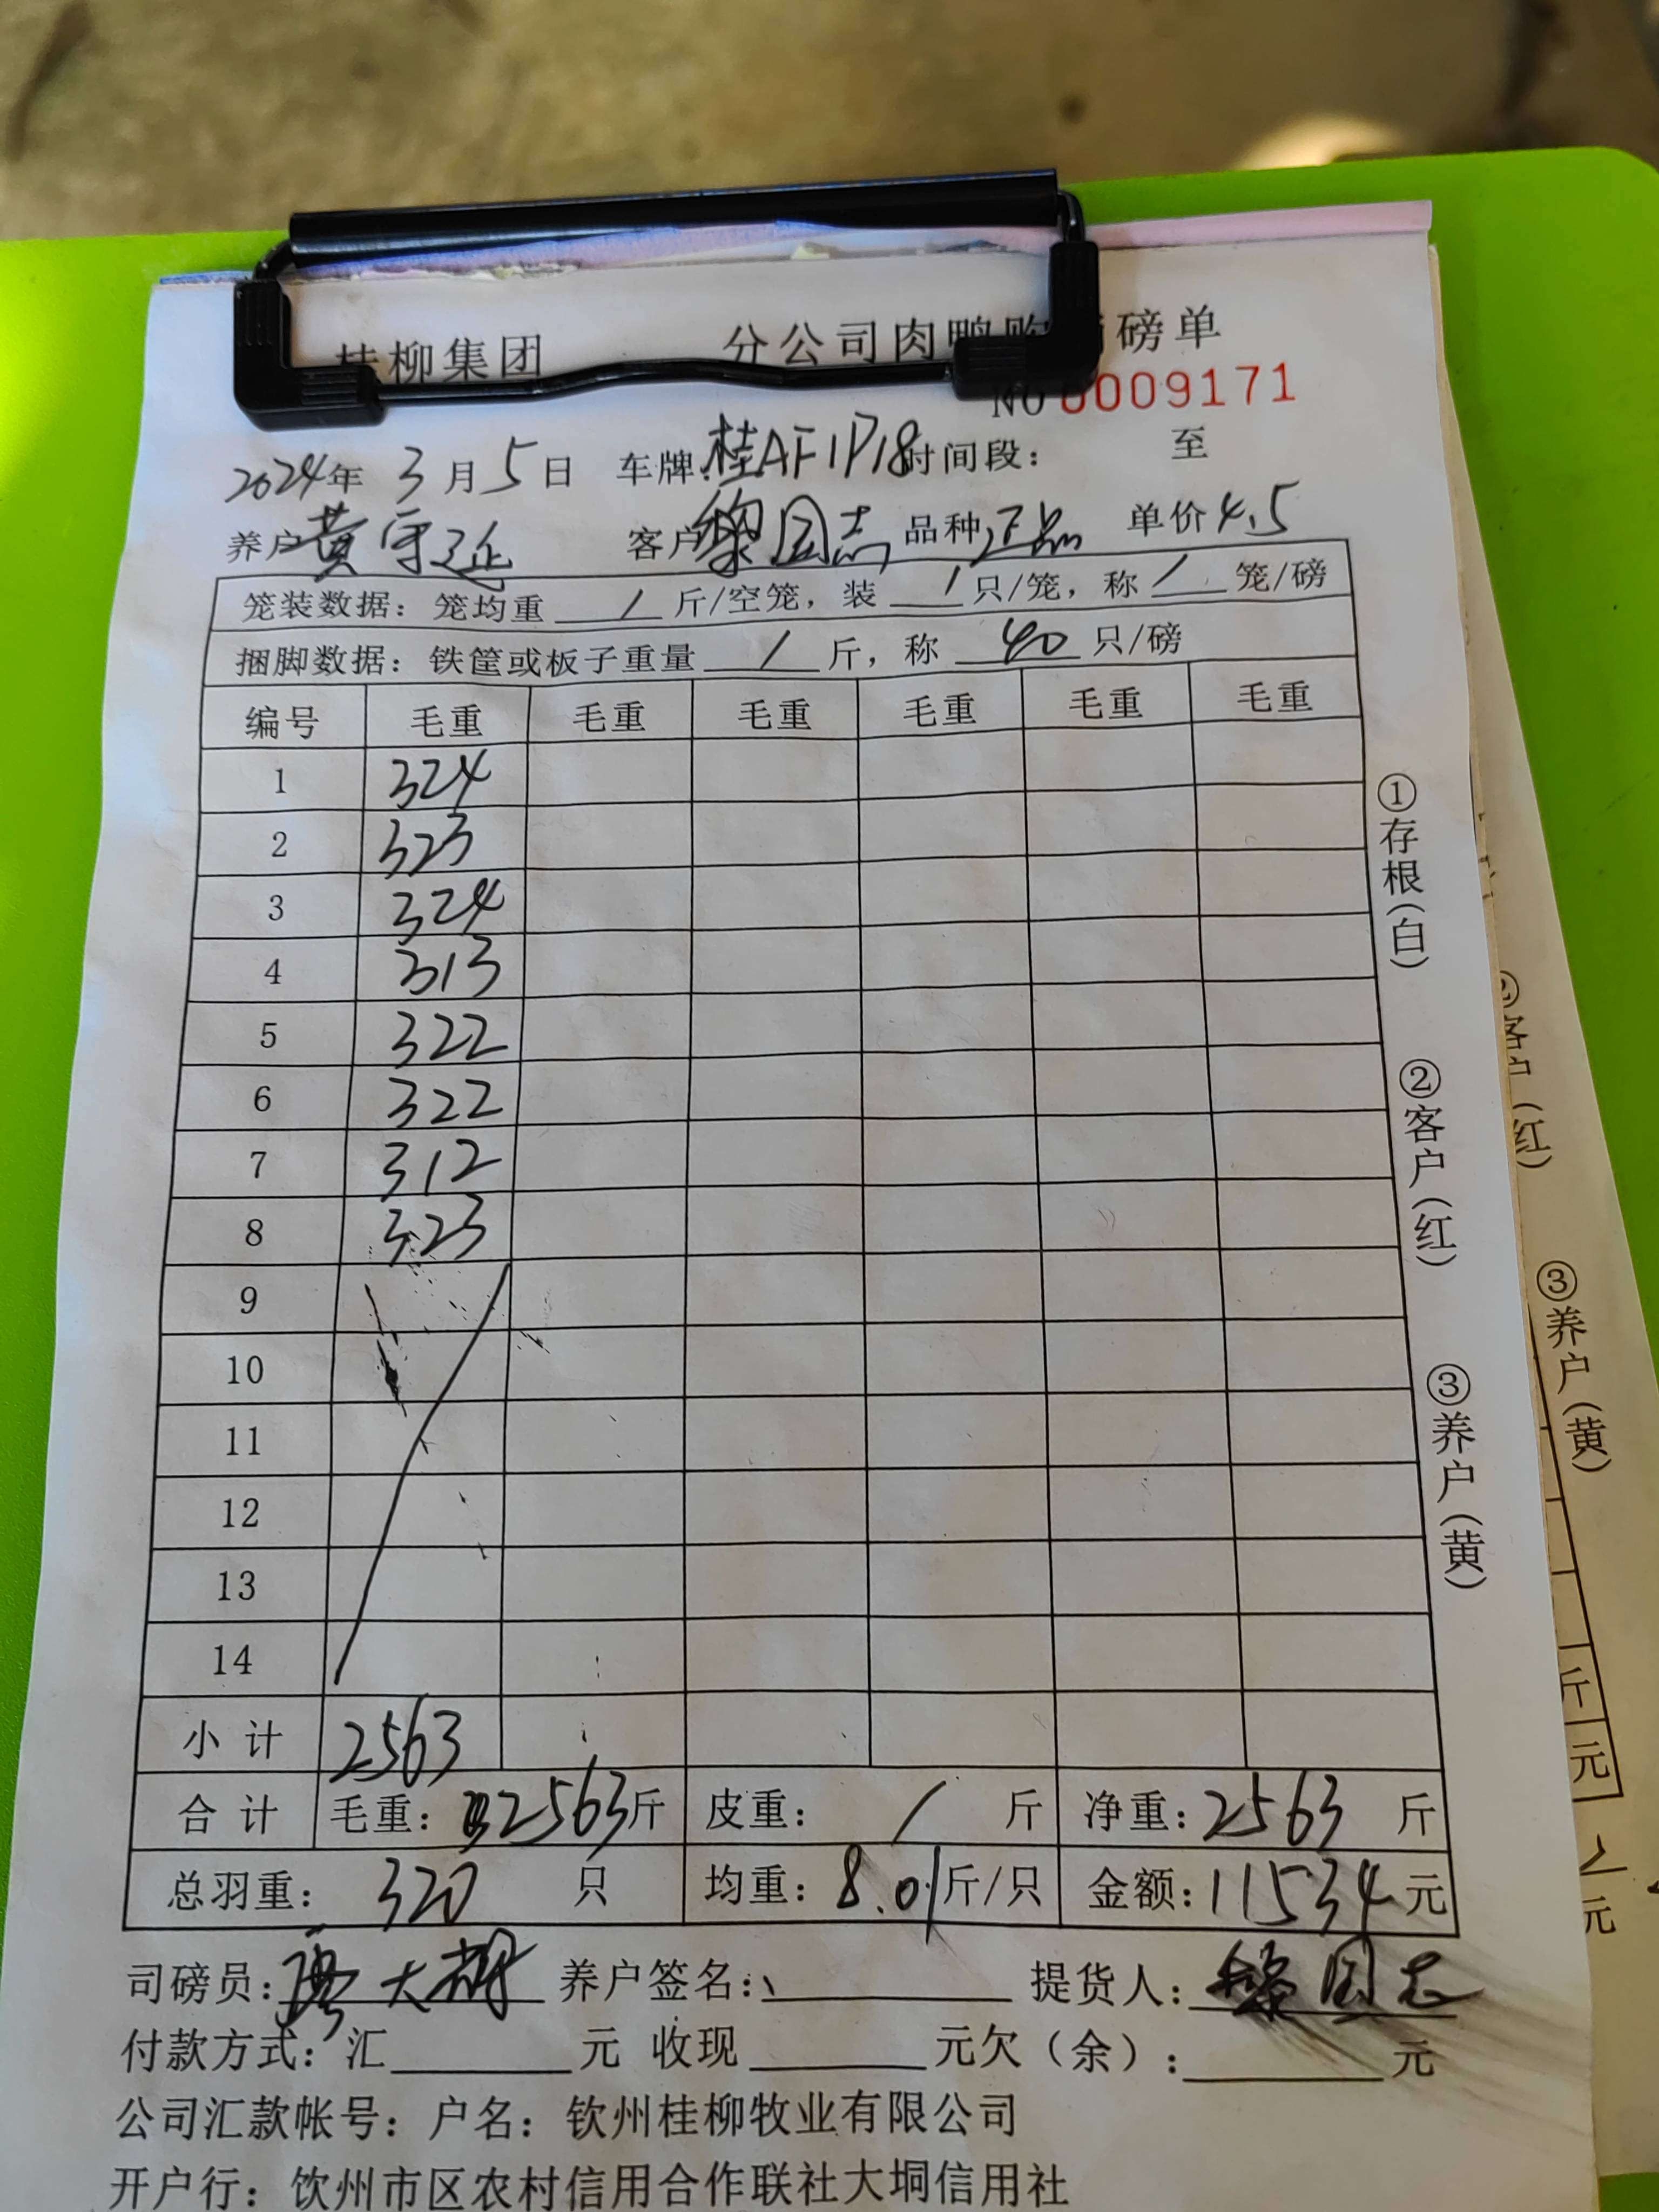 桂柳集团 分公司肉鸭购销磅单
NO 0009171
2024年 3月5日 车牌:桂AF1P18时间段: 至
养户黄守延 客户黎国志 品种正品 单价4.5
笼装数据:笼均重 / 斤/空笼,装 / 只/笼,称 / 笼/磅
捆脚数据:铁筐或板子重量 / 斤,称 40 只/磅
编号 毛重 毛重 毛重 毛重 毛重 毛重
1 324
2 323
3 324
4 313
5 322
6 322
7 312
8 323
9
10
11
12
13
14
小计 2563
合计 毛重:2563斤 皮重: / 斤 净重:2563 斤
总羽重: 320 只 均重:8.01斤/只 金额:11534元
司磅员: 养户签名: 提货人:黎国志
付款方式:汇 元 收现 元欠(余): 元
公司汇款帐号:户名:钦州桂柳牧业有限公司
开户行:饮州市区农村信用合作联社大垌信用社
①存根(白)
②客户(红)
③养户(黄)
②客户(红)
③养户(黄)
斤
元
元